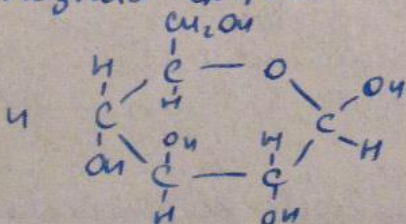 CH₂OH
H C — O
H
и C C OH
OH OH H H
C — C
H OH